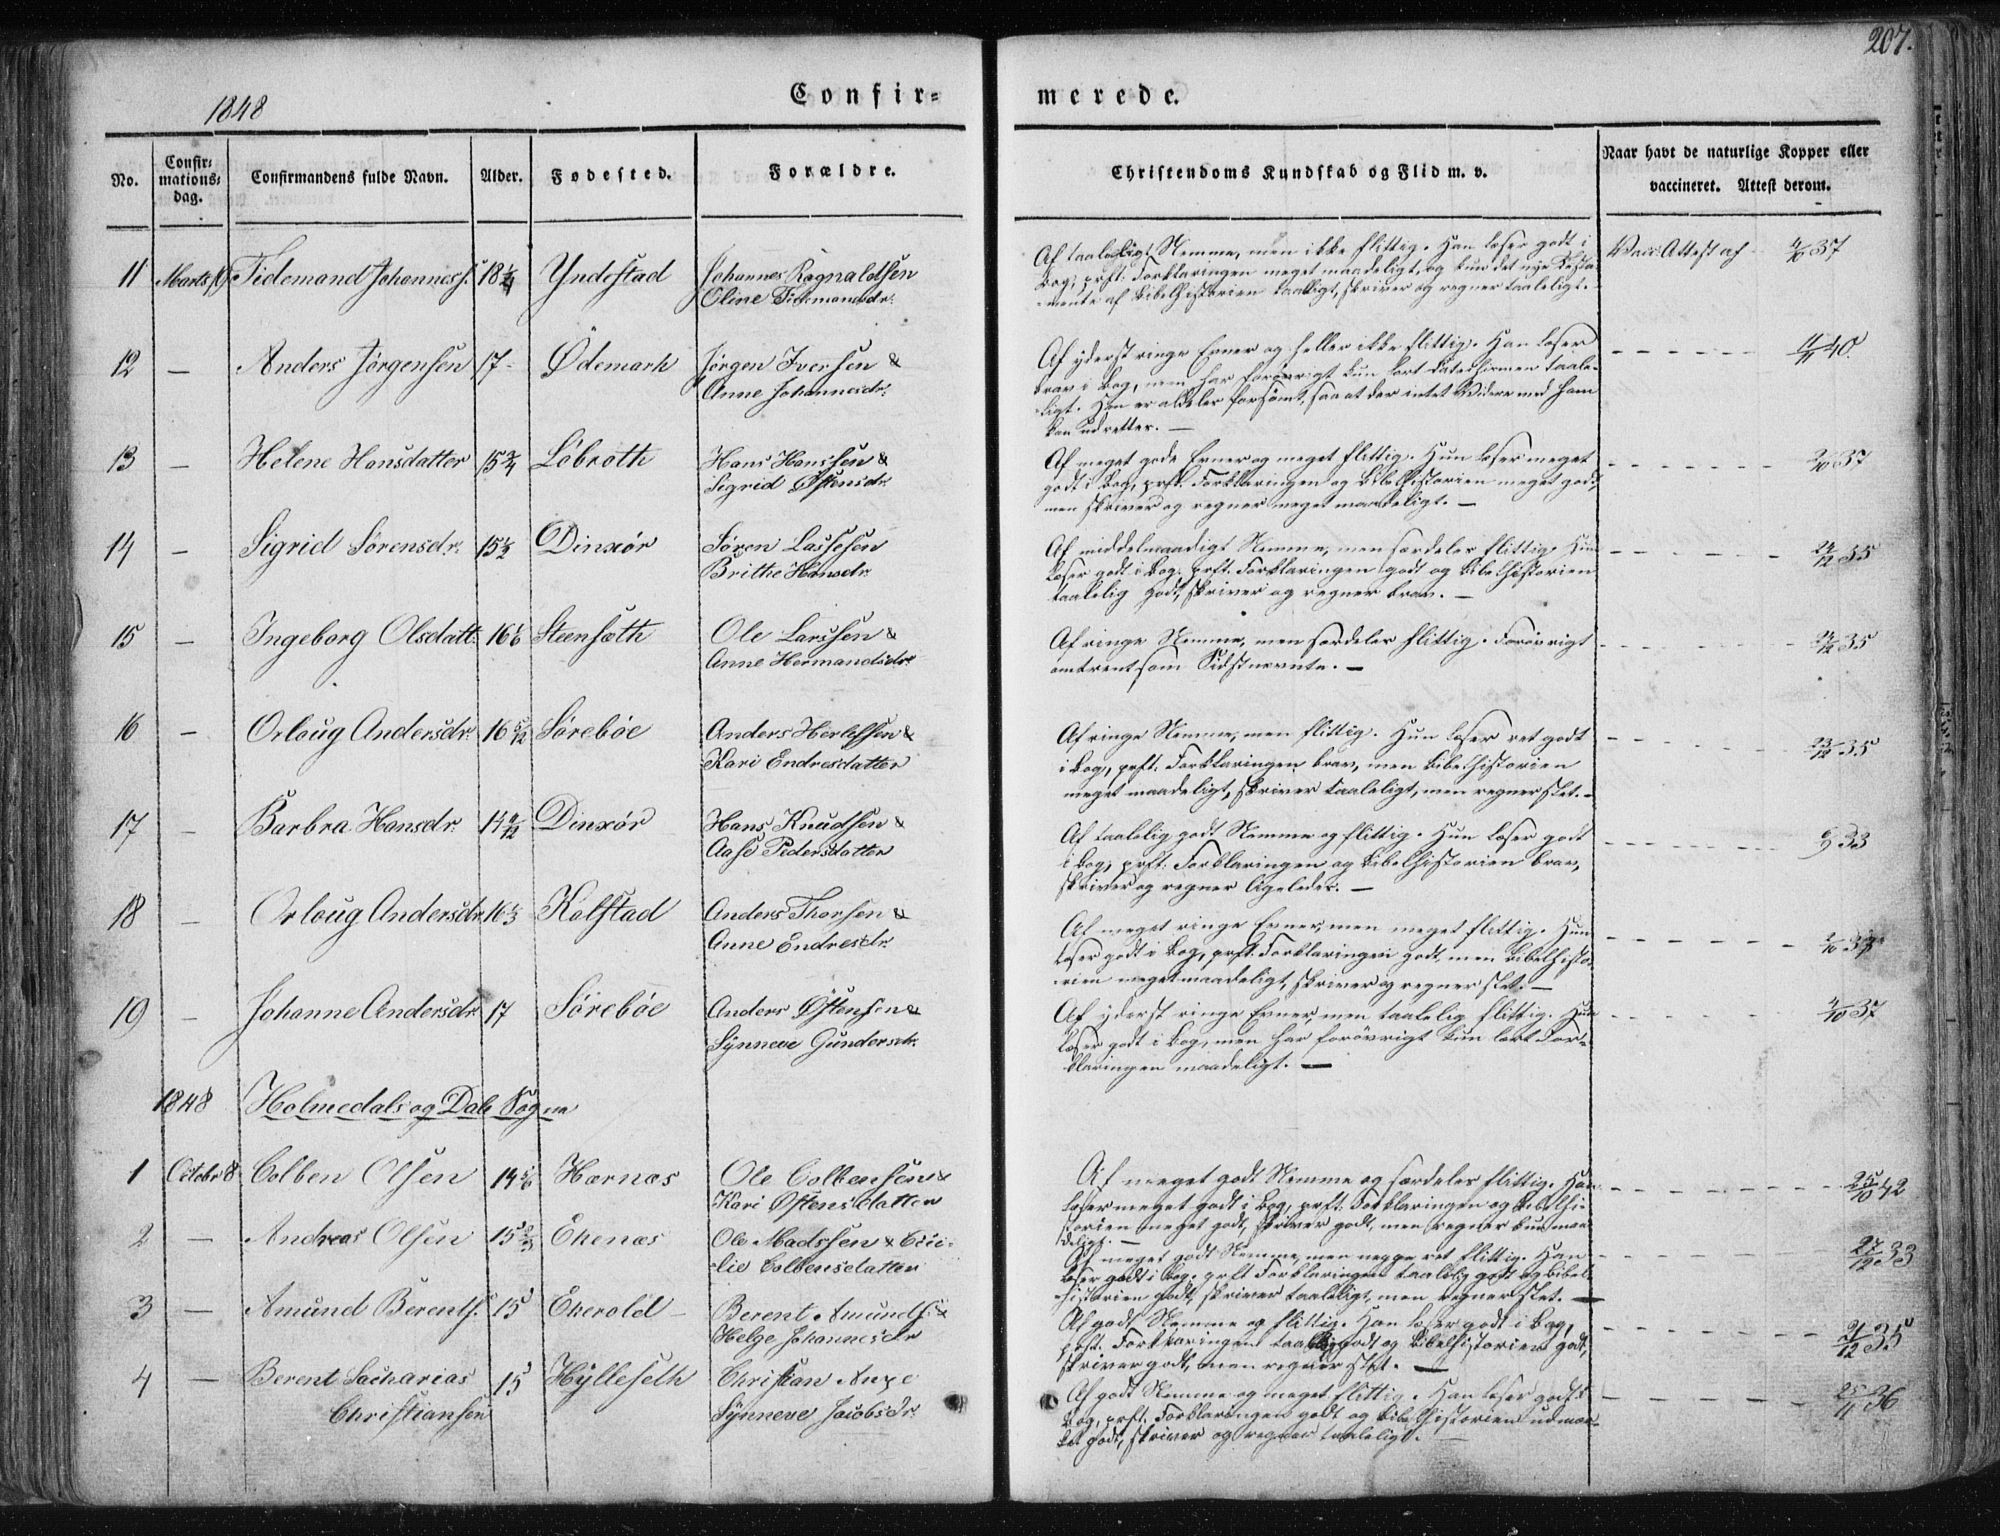 207.
1848
Confir= merede.
No. Confir: mations: dag. Confirmandens fulde Navn. Alder. Fødested. Forældre. Christendoms Kundskab og Flid m. v. Naar havt de naturlige Kopper eller vaccineret. Attest derom.
11 Marts 19 Tidemand Johanness. 18 1/4 Yndestad Johannes Ragnaldsen
Oline Tidemandsdr.
Af taalelig Nemme, men ikke flittig. Han læser godt i
Bog, prst. Forklaringen meget maadeligt, og kun det nye Testa-
mente af Bibelhistorien taaleligt, skriver og regner taaleligt.
Vacc. Attest af 37
12 — Anders Jørgensen 17 - Ødemark Jørgen Iversen &
Anne Johannesdr.
Af yderst ringe Evner og heller ikke flittig. Han læser
brav i Bog, men har forövrigt kun lært Catechismen taale-
ligt. Han er aldeles forsömt, saa at der intet Videre med ham
kan udrettes. —
40.
13 — Helene Hansdatter 15 3/4 Löbroth Hans Hanssen &
Sigrid Østensdr.
Af meget gode Evner og meget flittig. Hun læser meget
godt i Bog, prst. Forklaringen og Bibelhistorien meget godt,
men skriver og regner meget maadeligt. —
2/10 37
14 — Sigrid Sörensdr. 15 1/2 Dinxör Sören Lassesen
Brithe Hansdr.
Af middelmaadigt Nemme, men særdeles flittig. Hun
læser godt i Bog, prst. Forklaringen godt og Bibelhistorien
taalelig godt, skriver og regner brav. —
24/12 35
15 — Ingeborg Olsdatt. 16 1/6 Steensæth Ole Larssen &
Anne Hermandsdr.
Af ringe Nemme, men særdeles flittig. Forövrigt
omtrent som Sidstnævnte. —
24/12 35
16 - Orloug Andersdr. 16 5/12 Sörebøe Anders Herlefsen &
Kari Endresdatter
Af ringe Nemme, men flittig. Hun læser ret godt
i Bog, prst. Forklaringen brav, men Bibelhistorien
meget maadeligt, skriver taaleligt, men regner slet. -
23/12 35
17 - Barbra Hansdr. 14 Dinxör Hans Knudsen &
Aase Pedersdatter
Af taalelig godt Nemme og flittig. Hun læser godt
i Bog, prst. Forklaringen og Bibelhistorien brav,
skriver og regner ligeledes. —
6/9 33
18 - Orloug Andersdr. 16 Kolstad Anders Thorsen &
Anne Endresdr.
Af meget ringe Evner, men meget flittig. Hun
læser godt i Bog, prst. Forklaringen godt, men Bibelhisto-
rien meget maadeligt, skriver og regner slet. —
2/10 37
19 - Johanne Andersdr. 17 Sörebøe Anders Østensen &
Synneve Gundersdr.
Af yderst ringe Evner, men taalelig flittig. Hun
læser godt i Bog, men har forövrigt kun lært For-
klaringen maadeligt. —
4/10 37
1848 Holmedals og Dals Sogne
1 Octobr 8 Colben Olsen 14 5/6 Hærnæs Ole Colbensen &
Kari Østensdatter
Af meget godt Nemme og særdeles flittig. Han
læser meget godt i Bog, prst. Forklaringen og Bibelhi-
storien meget godt, skriver godt, men regner kun maa-
deligt. —
25/10 42
2 — Andreas Olsen 15 2/3 Ekenæs Ole Madssen & Ceci-
lie Colbensdatter
Af meget godt Nemme, men neppe ret flittig. Han
læser godt i Bog, prst Forklaringen taalelig godt og Bibel-
historien godt, skriver taaleligt, men regner slet. —
27/12 33
3 — Amund Berents. 15 Eherold Berent Amunds. &
Helge Johannesdr
Af godt Nemme og flittig. Han læser godt i Bog,
prst. Forklaringen taalelig godt og Bibelhistorien godt,
skriver godt, men regner slet. —
21/12 35
4 — Berent Sacharias 15 Hylleseth Christian Auge
Christiansen Synneve Jacobsdr.
Af godt Nemme og meget flittig. Han læser godt i
Bog, prst. Forklaringen godt og Bibelhistorien udmær-
ket godt, skriver og regner taaleligt. —
25/11 36